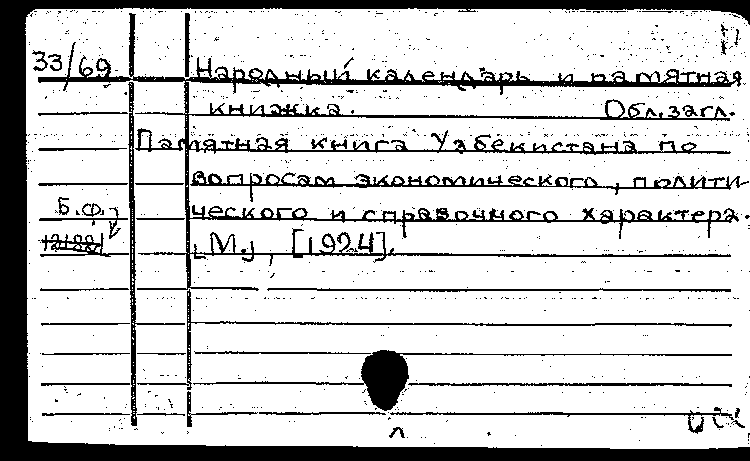 33/69
Народный календарь и памятная
книжка. Обл. загл.
Памятная книга Узбекистана по
вопросам экономического, полити-
ческого и справочного характера.
Б.Ф.
[М.], [1924].